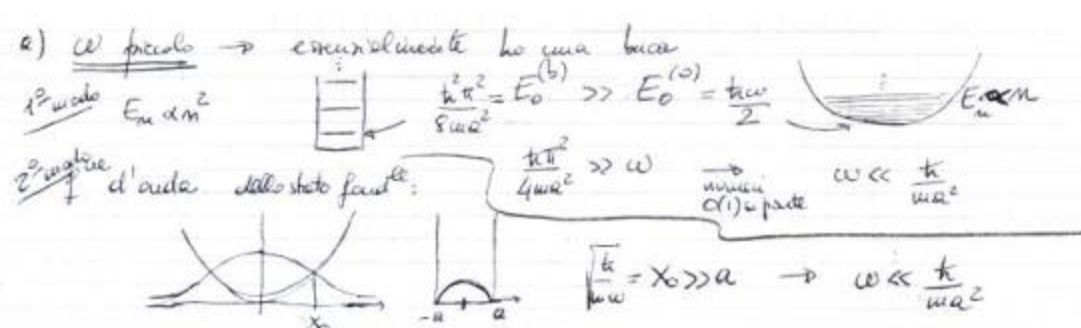 a) ω piccolo → essenzialmente ho una buca
1° modo E_n ∝ n² ħ²π²/8ma² = E₀^(b) >> E₀^(o) = ħω/2 E_n ∝ n
ħπ²/4ma² >> ω → numeri O(1) a parte ω << ħ/ma²
d'onda dello stato fond^le:
√(ħ/mω) = x₀ >> a → ω << ħ/ma²
x₀ -a a